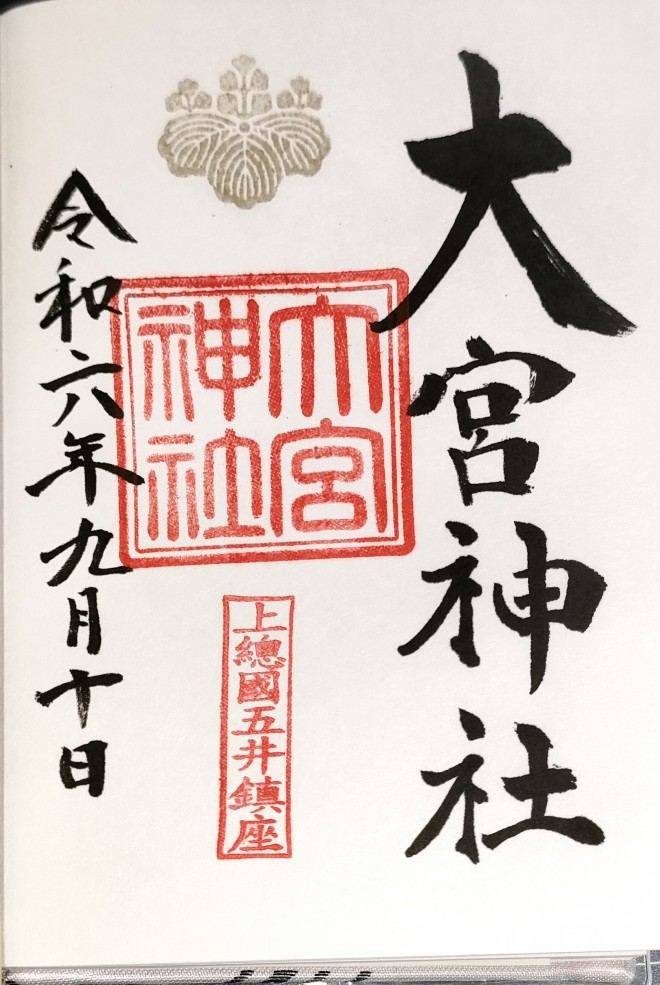 大宮神社
大宮
神社
上總國五井鎮座
令和六年九月十日